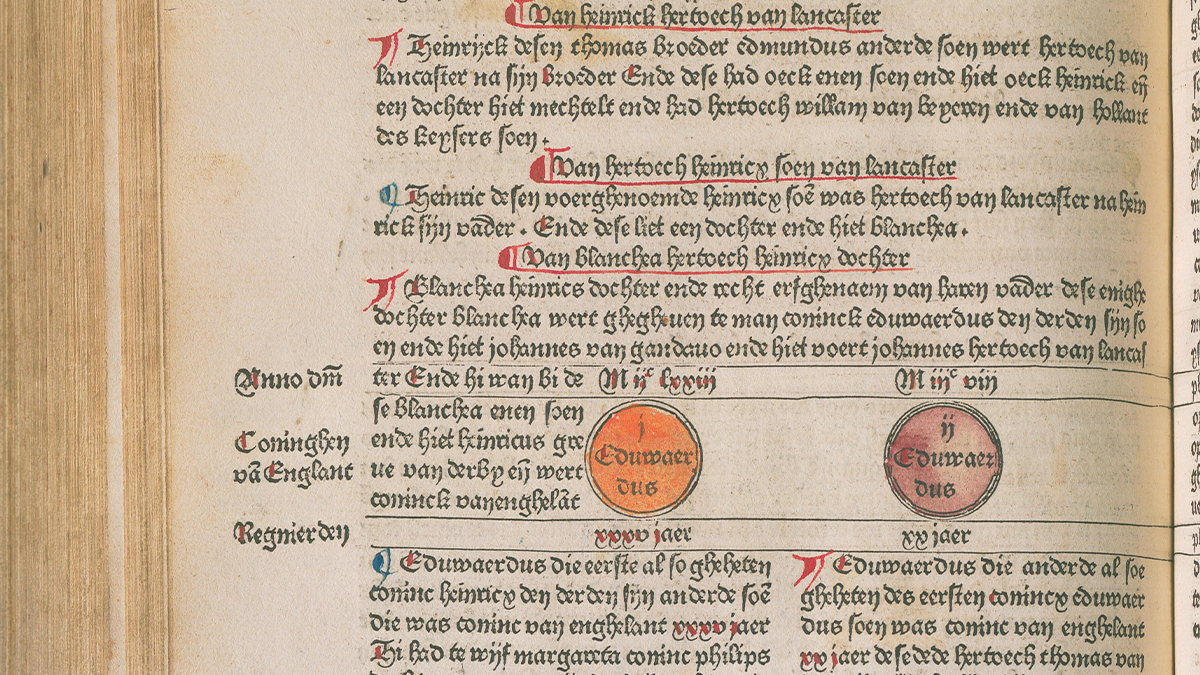 Van heinrick hertoech van lancaster
Heinrijck desen thomas broeder edmundus anderde soen wert hertoech van
lancaster na sijn broeder Ende dese had oeck enen soen ende hiet oeck heinrick eñ
een dochter hiet mechtelt ende had hertoech willam van beyeren ende van hollant
des keysers soen.
Van hertoech heinricx soen van lancaster
Heinric desen voerghenoemde heinricx soē was hertoech van lancaster na hein
rick sijn vād̄er. Ende dese liet een dochter ende hiet blanchea.
Van blanchea hertoech heinricx dochter
Blanchea heinrics dochter ende recht erfghenaem van haren vād̄er dese enighe
dochter blanchea wert ghegheuen te man coninck eduwaerdus den derden sijn so
en ende hiet johannes van gandauo ende hiet voert johannes hertoech van lancas
Anno dm̄
ter Ende hi wan bi de
M ijᶜ lxxiij
M iijᶜ viij
se blanchea enen soen
Coninghen
vā Englant
ende hiet heinricus gre
ue van derby eñ wert
coninck van enghelāt
j
Eduwaer
dus
ij
Eduwaer
dus
Regnierden
xxxv jaer
xx jaer
Eduwaerdus die eerste al so gheheten
coninc heinricx den derden sijn anderde soē
die was coninc van enghelant xxxv jaer
Hi had te wijf margareta coninc philips
Eduwaerdus die anderde al soe
gheheten des eersten conincx eduwaer
dus soen was coninc van enghelant
xx jaer dese dede hertoech thomas van